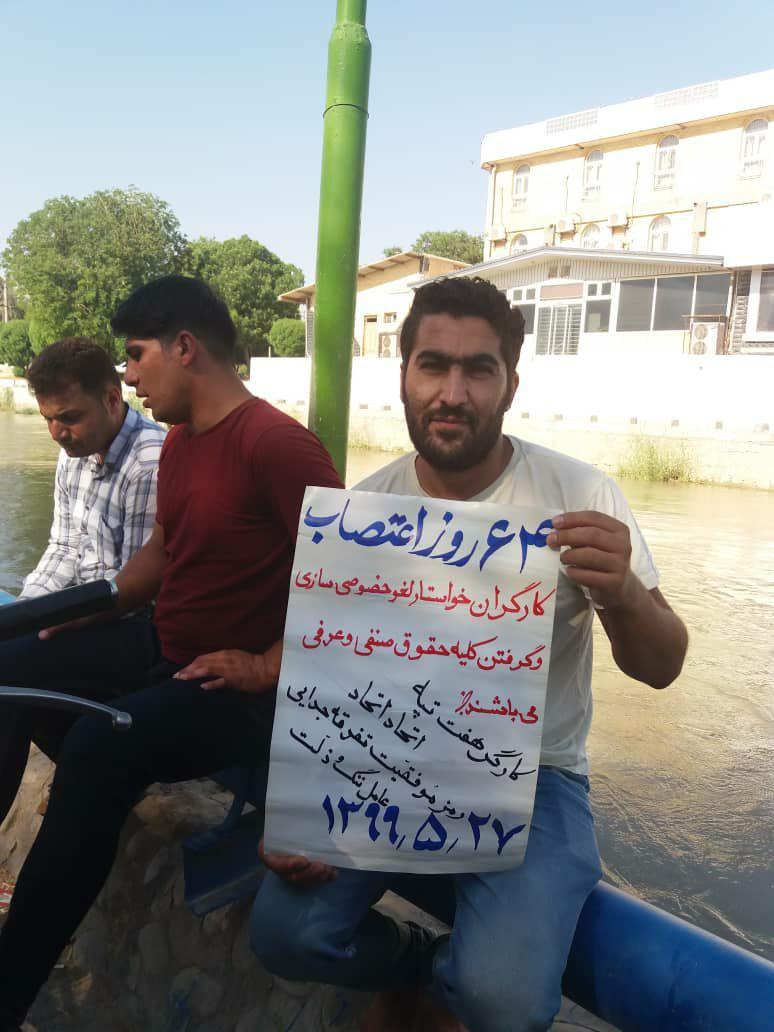 ۶۴ روز اعتصاب
کارگران خواستار لغو خصوصی سازی
و گرفتن کلیه حقوق صنفی و عرفی
می باشند
کارگر هفت تپه
اتحاد اتحاد
رمز موفقیت تفرقه جدایی
عامل ننگ و ذلت
۲۷ ٫ ۵ ٫ ۱۳۹۹